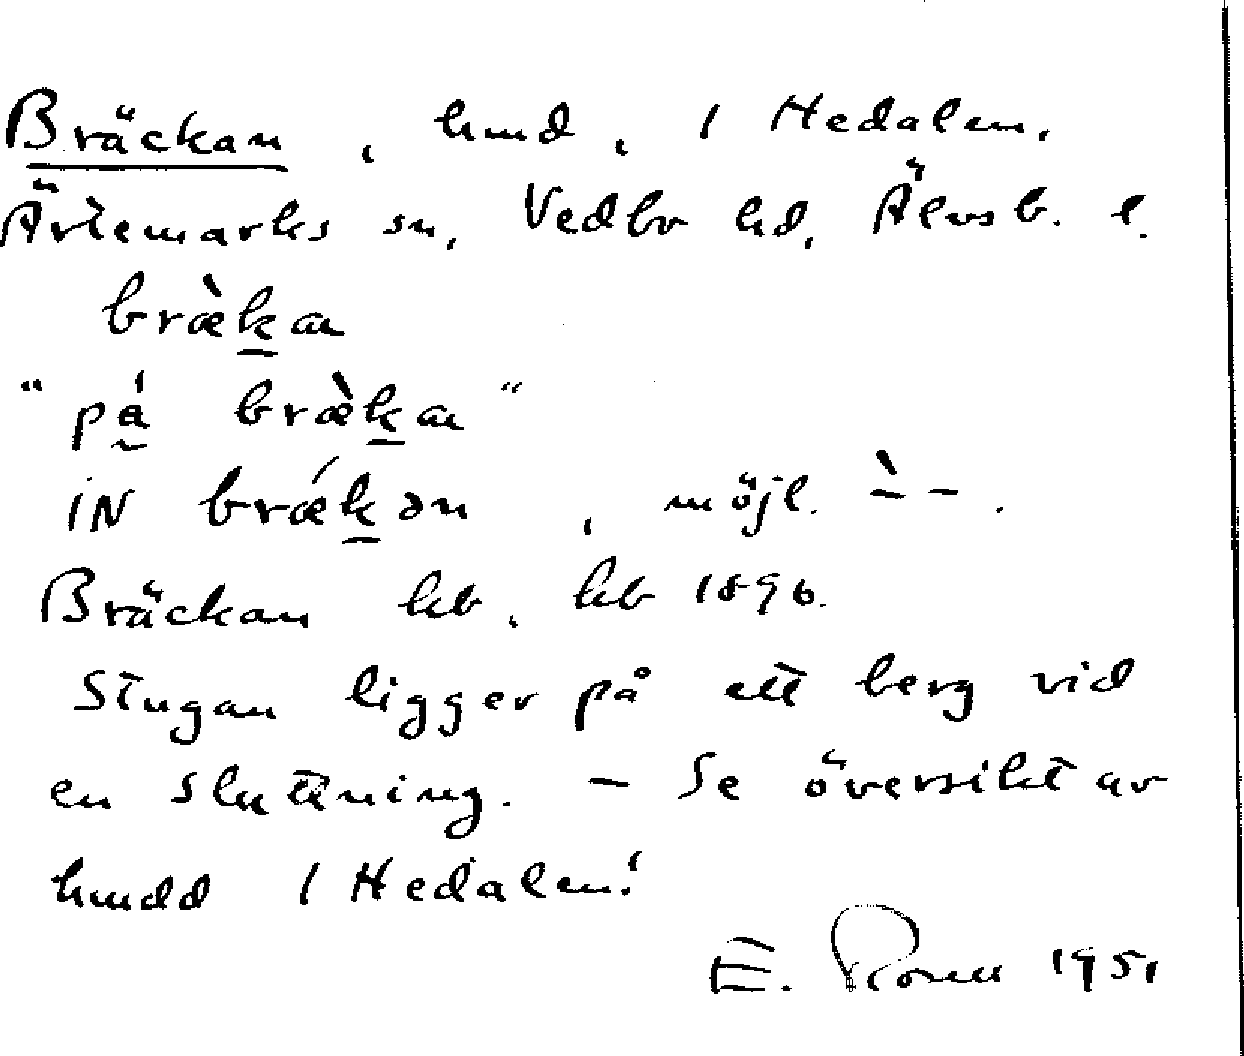 Bräckan, hmd, 1 Hedalen,
Ärtemarks sn, Vedbo hd, Älvsb. l.
bræ̀k̲an
"pǻ bræ̀k̲an"
iN brǽk̲ən, möjl. ̀- -.
Bräckan hb, hb 1896.
Stugan ligger på ett berg vid
en sluttning. – Se översikt av
hmdd 1 Hedalen!
E. 1951